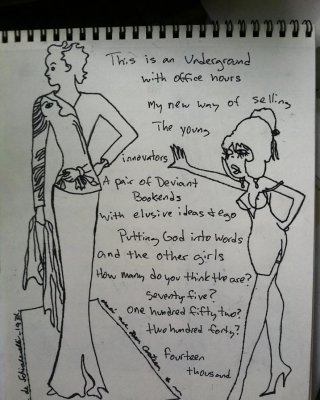 This is an Underground
with office hours
My new way of selling
The young
innovators
A pair of Deviant
Bookends
with elusive ideas & ego
Putting God into words
and the other girls
How many do you think the are?
seventy five?
one hundred fifty two?
two hundred forty?
fourteen
thousand